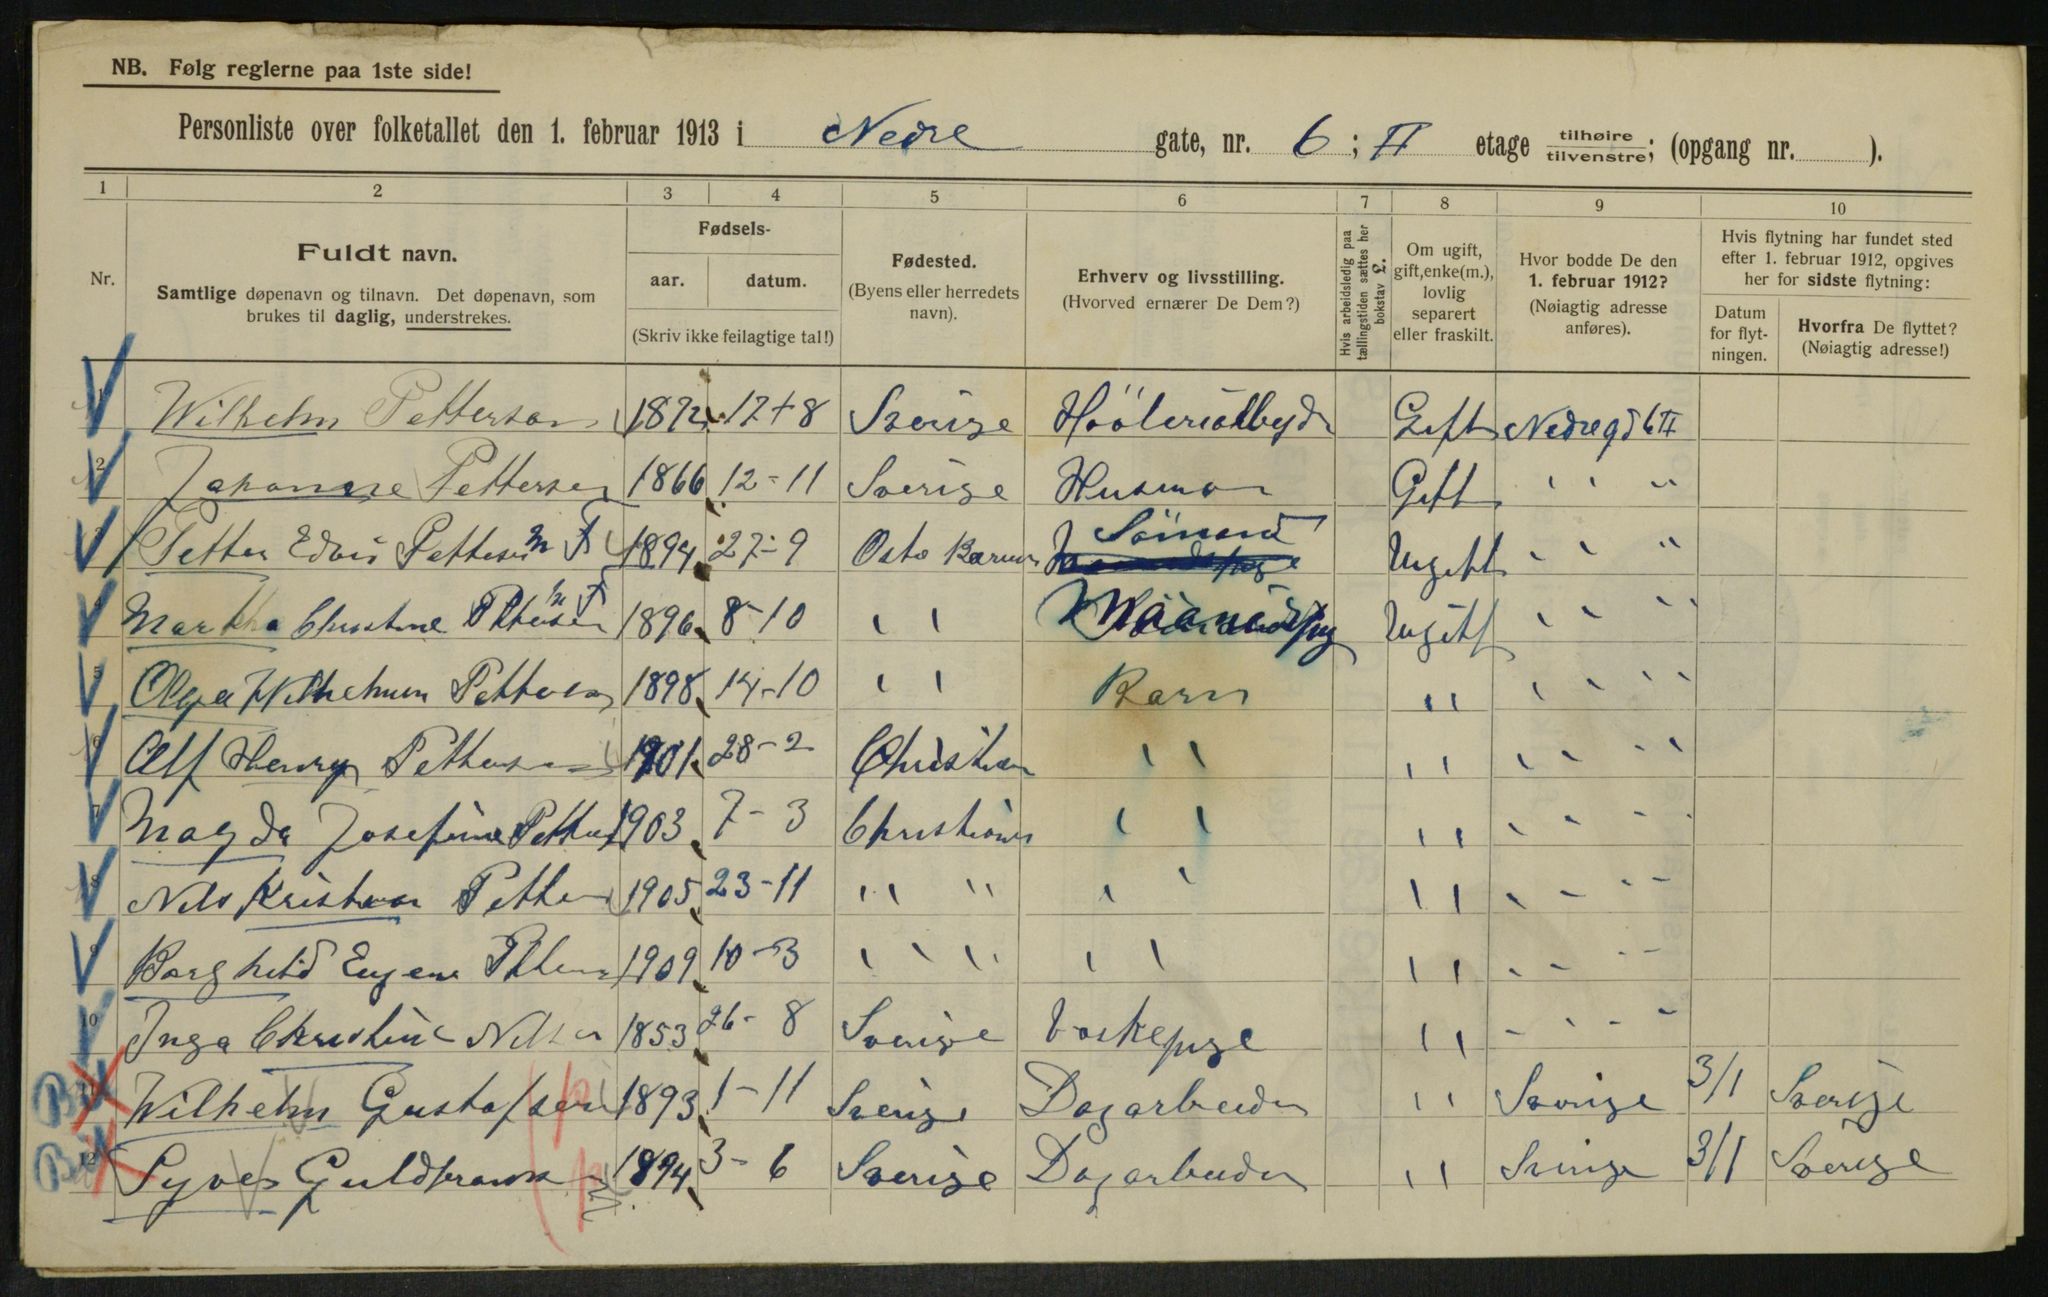 NB. Følg reglerne paa 1ste side!
Personliste over folketallet den 1. februar 1913 i Nedre gate, nr. 6 ; II etage tilhøire / tilvenstre; (opgang nr. ).
1 2 3 4 5 6 7 8 9 10
Nr.
Fuldt navn.
Samtlige døpenavn og tilnavn. Det døpenavn, som
brukes til daglig, understrekes.
Fødsels-
aar. datum.
(Skriv ikke feilagtige tal!)
Fødested.
(Byens eller herredets
navn).
Erhverv og livsstilling.
(Hvorved ernærer De Dem?)
Hvis arbeidsledig paa
tællingstiden sættes her
bokstav L.
Om ugift,
gift, enke(m.),
lovlig
separert
eller fraskilt.
Hvor bodde De den
1. februar 1912?
(Nøiagtig adresse
anføres).
Hvis flytning har fundet sted
efter 1. februar 1912, opgives
her for sidste flytning:
Datum
for flyt-
ningen.
Hvorfra De flyttet?
(Nøiagtig adresse!)
1 Wilhelm Petterson 1872 17-8 Sverige Gift Nedregd 6 II
2 Johanne Pettersen 1866 12-11 Sverige Gift " " "
3 Petter Pettersen 1894 27-9 Ugift " " "
4 Martha Christine Pettersen 1896 8-10 " " Ugift " " "
5 Olga Wilhelmine Pettersen 1898 14-10 " " Barn " " " "
6 Alf Henry Pettersen 1901 28-2 Christian " " " " " "
7 Magda Josefine Petters 1903 7-3 Christiania " " " " " "
8 Nils Kristian Petters 1905 23-11 " " " " " " " "
9 Borghild Eugene 1909 10-3 " " " " " " " "
10 Inga Christine Nilsen 1853 26-8 Sverige Vaskepige " " " "
11 Wilhelm Gustafsen 1893 1-11 Sverige Dagarbeider " Sverige 3/1 Sverige
12 1894 3-6 Sverige Dagarbeider " Sverige 3/1 Sverige